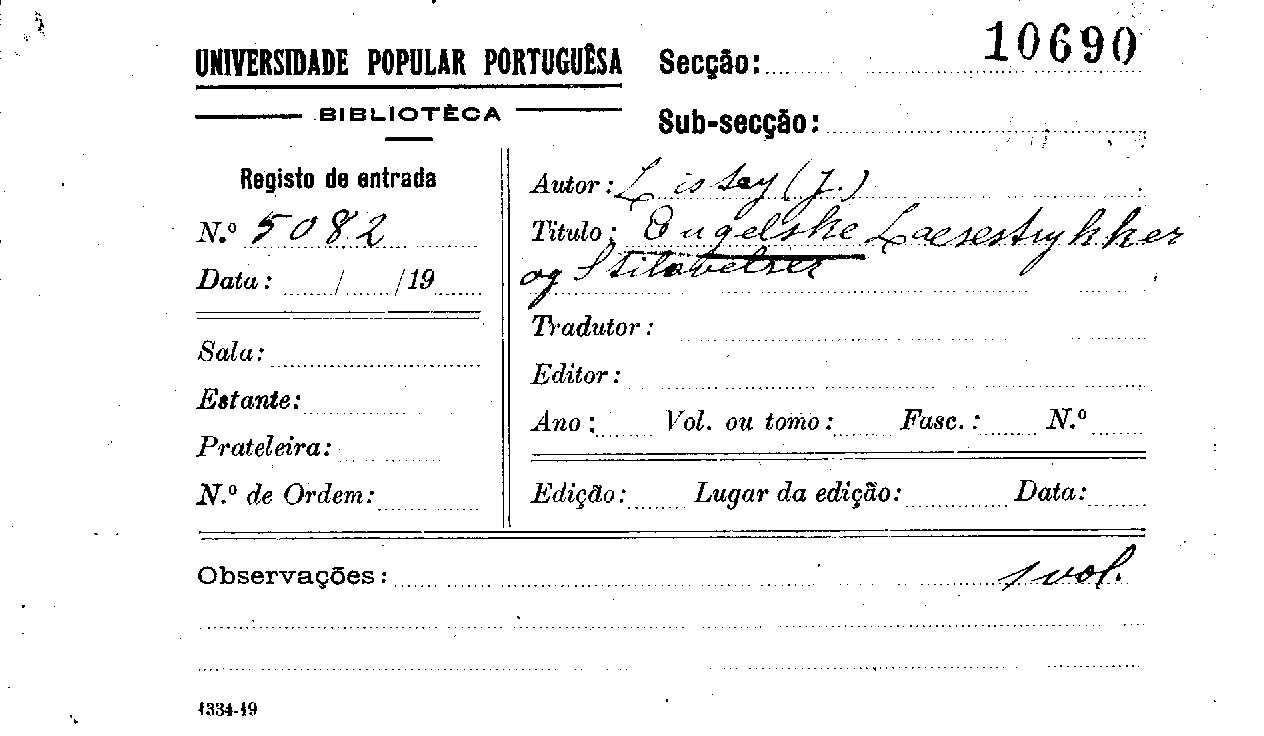 10690
UNIVERSIDADE POPULAR PORTUGUÊSA
BIBLIOTÈCA
Secção:
Sub-secção:
Registo de entrada
N.º 5082
Data: / /19
Sala:
Estante:
Prateleira:
N.º de Ordem:
Autor: Lissey (J.)
Titulo: Engelske Laesestykker
og Stiløvelser
Tradutor:
Editor:
Ano: Vol. ou tomo: Fasc.: N.º
Edição: Lugar da edição: Data:
Observações: 1 vol.
4334-19